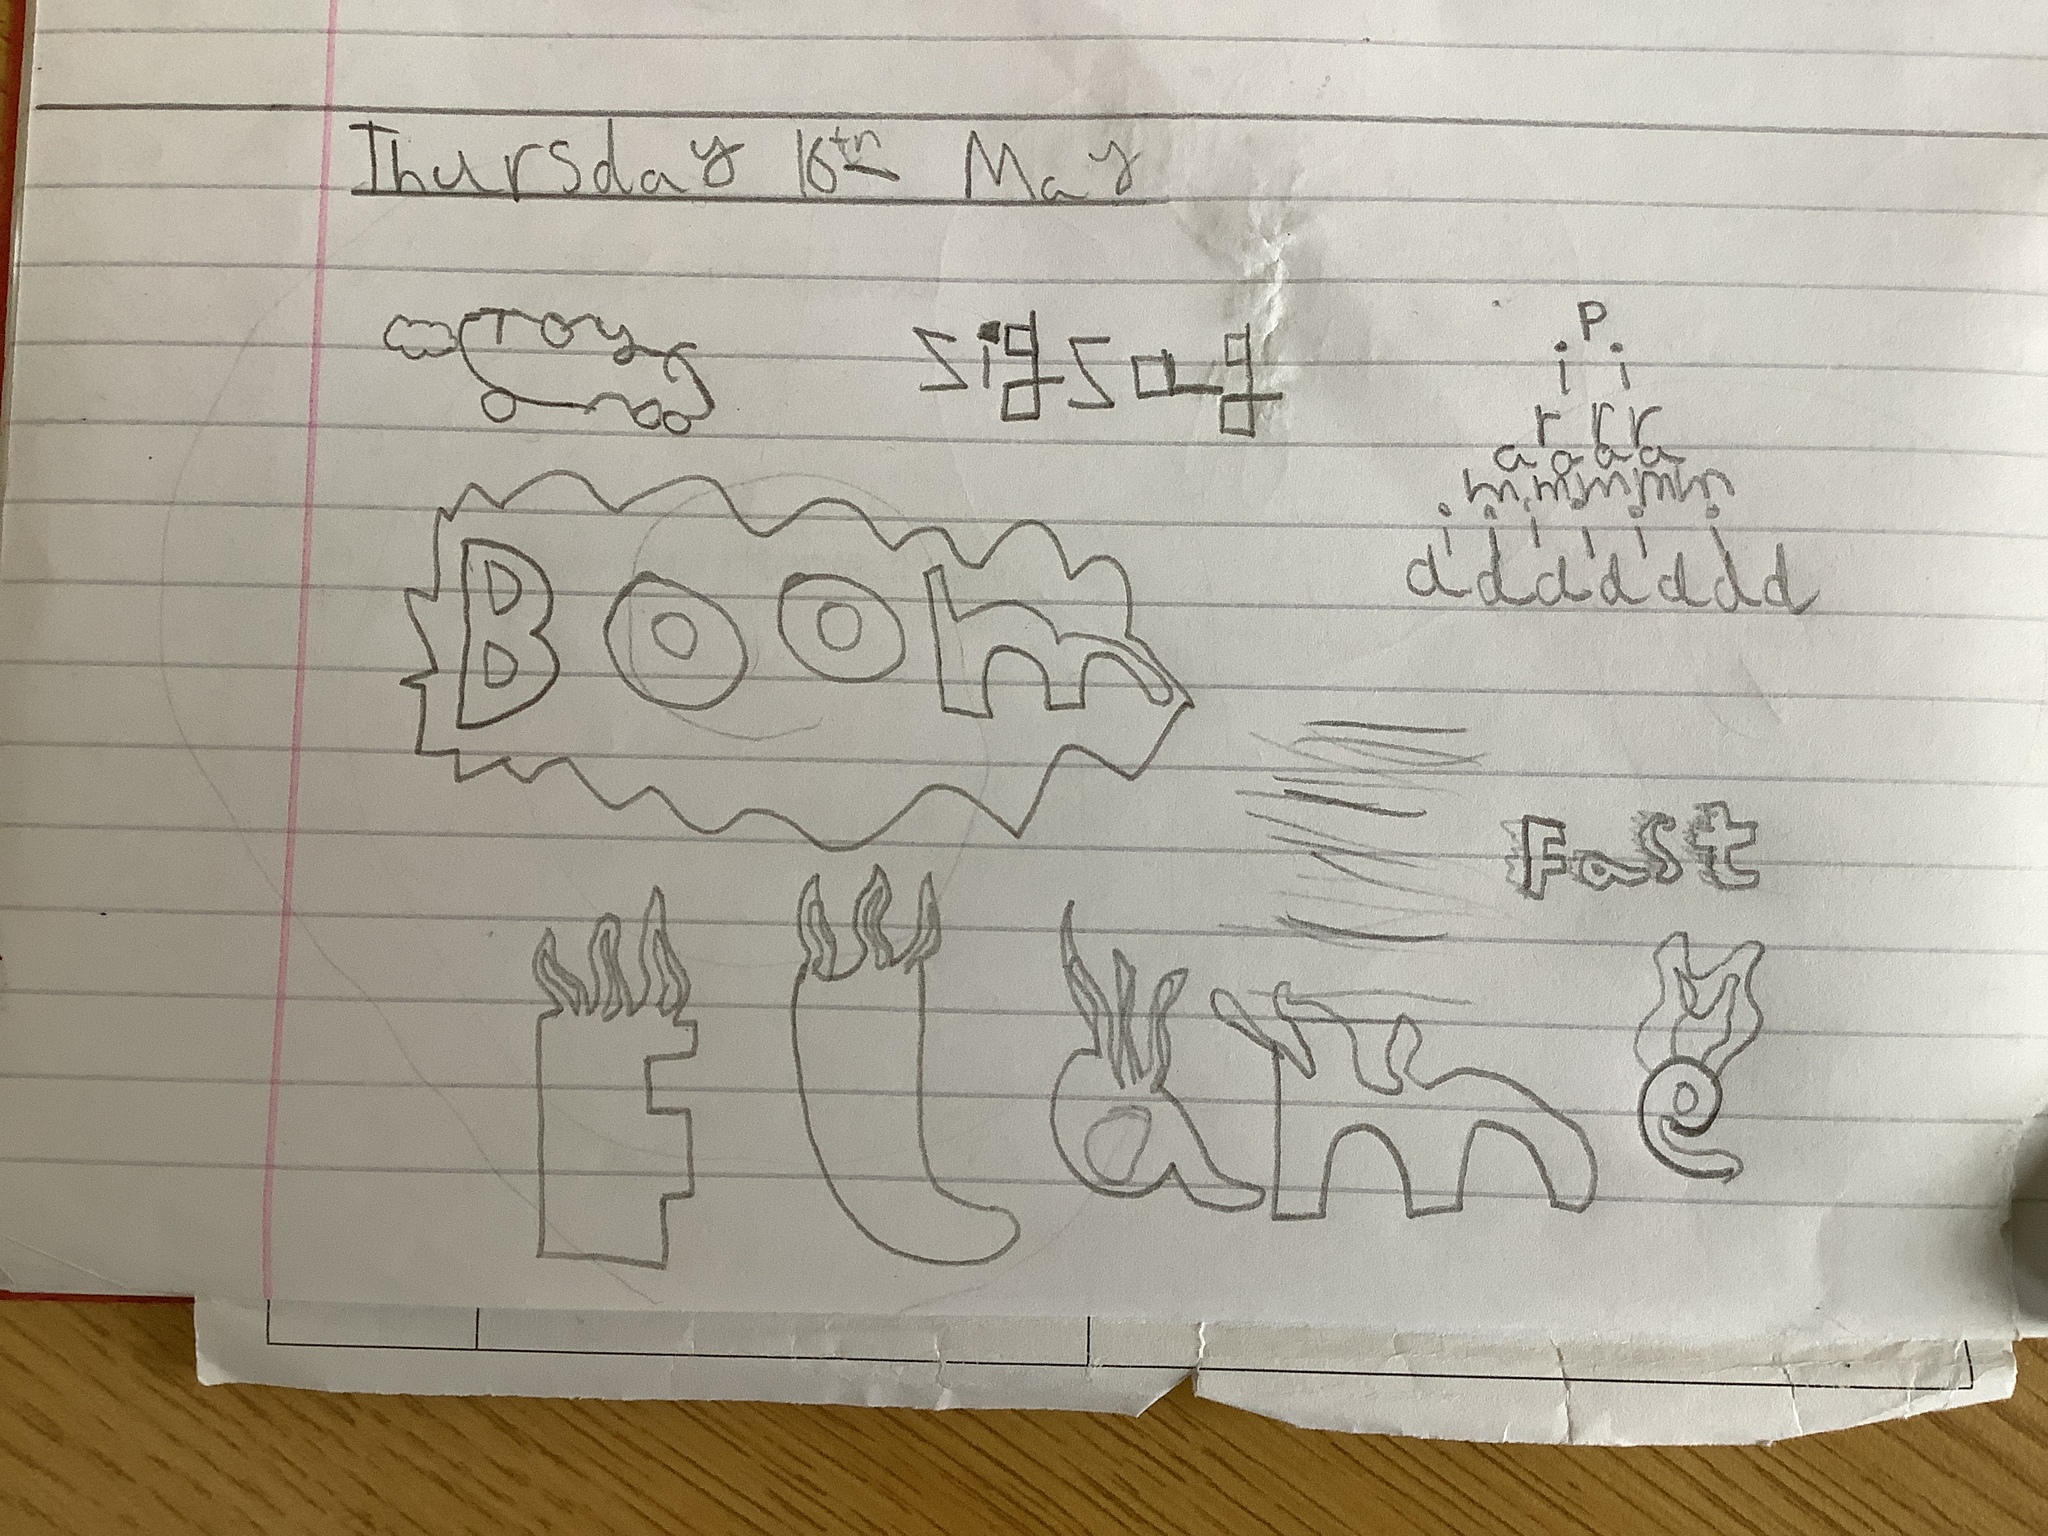 Thursday 16th May
Toy
sigsag
P
i i
r r r
a a a a
m m m m m
i i i i i i
d d d d d d d
Boom
Fast
Flame